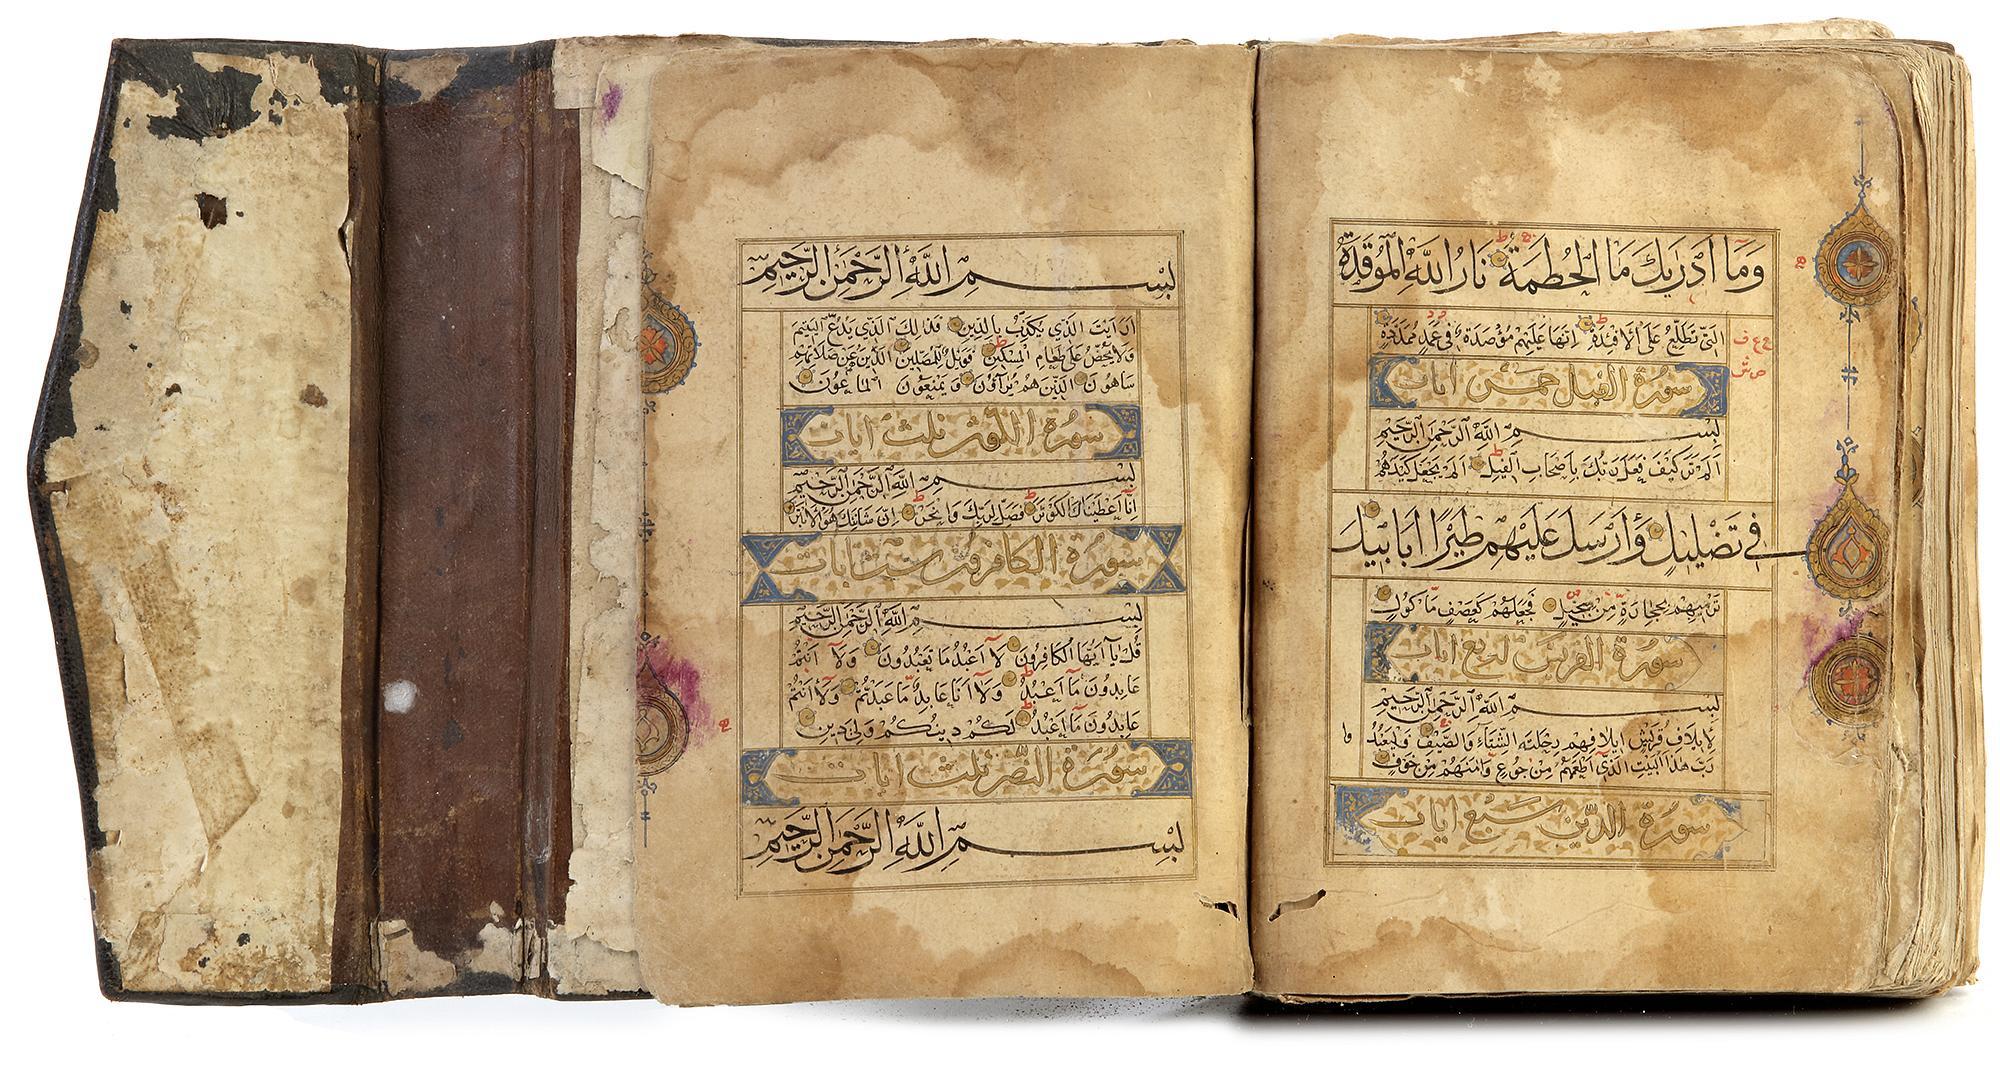 وَمَا أَدْرَيكَ مَا الْحُطَمَةُ نَارُ اللَّهِ الْمُوقَدَةُ
الَّتِي تَطَّلِعُ عَلَى الْأَفْئِدَةِ إِنَّهَا عَلَيْهِمْ مُؤْصَدَةٌ فِي عَمَدٍ مُمَدَّدَةٍ
سورة الفيل خمس آيات
بِسْمِ اللَّهِ الرَّحْمَنِ الرَّحِيمِ
أَلَمْ تَرَ كَيْفَ فَعَلَ رَبُّكَ بِأَصْحَابِ الْفِيلِ أَلَمْ يَجْعَلْ كَيْدَهُمْ
فِي تَضْلِيلٍ وَأَرْسَلَ عَلَيْهِمْ طَيْرًا أَبَابِيلَ
تَرْمِيهِمْ بِحِجَارَةٍ مِّنْ سِجِّيلٍ فَجَعَلَهُمْ كَعَصْفٍ مَأْكُولٍ
سورة القريش اربع آيات
بِسْمِ اللَّهِ الرَّحْمَنِ الرَّحِيمِ
لِإِيلَافِ قُرَيْشٍ إِيلَافِهِمْ رِحْلَةَ الشِّتَاءِ وَالصَّيْفِ فَلْيَعْبُدُوا
رَبَّ هَذَا الْبَيْتِ الَّذِي أَطْعَمَهُمْ مِنْ جُوعٍ وَآمَنَهُمْ مِنْ خَوْفٍ
سورة الدين سبع آيات
بِسْمِ اللَّهِ الرَّحْمَنِ الرَّحِيمِ
أَرَأَيْتَ الَّذِي يُكَذِّبُ بِالدِّينِ فَذَلِكَ الَّذِي يَدُعُّ الْيَتِيمَ
وَلَا يَحُضُّ عَلَى طَعَامِ الْمِسْكِينِ فَوَيْلٌ لِلْمُصَلِّينَ الَّذِينَ هُمْ عَنْ صَلَاتِهِمْ
سَاهُونَ الَّذِينَ هُمْ يُرَآؤُنَ وَيَمْنَعُونَ الْمَاعُونَ
سورة الكوثر ثلث آيات
بِسْمِ اللَّهِ الرَّحْمَنِ الرَّحِيمِ
إِنَّا أَعْطَيْنَاكَ الْكَوْثَرَ فَصَلِّ لِرَبِّكَ وَانْحَرْ إِنَّ شَانِئَكَ هُوَ الْأَبْتَرُ
سورة الكافرون ست آيات
بِسْمِ اللَّهِ الرَّحْمَنِ الرَّحِيمِ
قُلْ يَا أَيُّهَا الْكَافِرُونَ لَا أَعْبُدُ مَا تَعْبُدُونَ وَلَا أَنْتُمْ
عَابِدُونَ مَا أَعْبُدُ وَلَا أَنَا عَابِدٌ مَا عَبَدْتُمْ وَلَا أَنْتُمْ
عَابِدُونَ مَا أَعْبُدُ لَكُمْ دِينُكُمْ وَلِيَ دِينِ
سورة النصر ثلث آيات
بِسْمِ اللَّهِ الرَّحْمَنِ الرَّحِيمِ